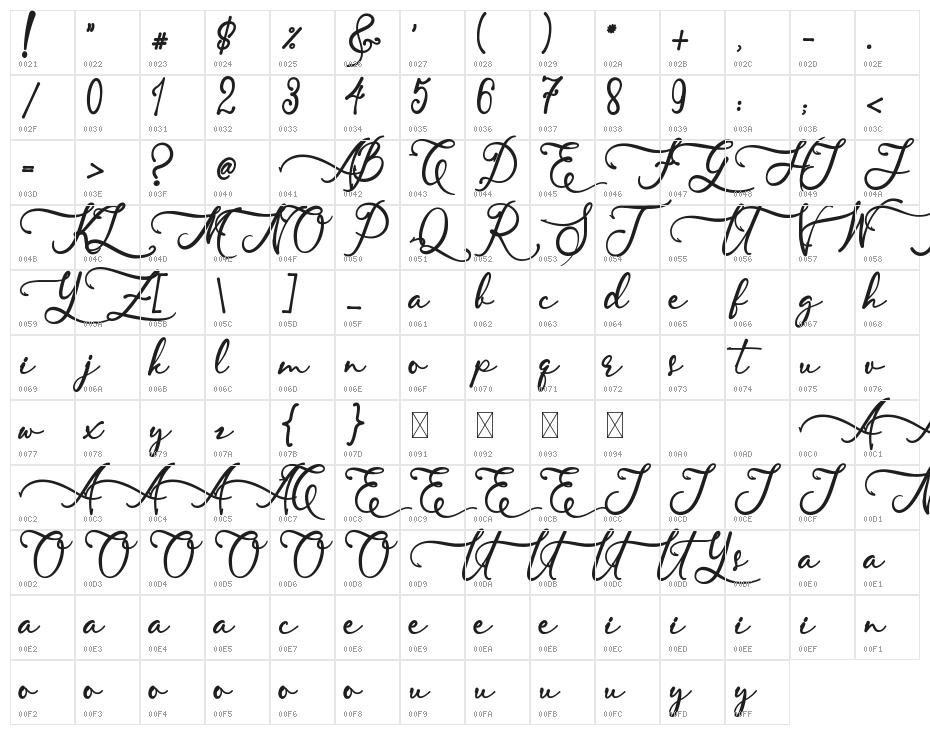 ! " # $ % & ' ( ) * + , - .
0021 0022 0023 0024 0025 0026 0027 0028 0029 002A 002B 002C 002D 002E
/ 0 1 2 3 4 5 6 7 8 9 : ; <
002F 0030 0031 0032 0033 0034 0035 0036 0037 0038 0039 003A 003B 003C
= > ? @ A B C D E F G H I J
003D 003E 003F 0040 0041 0042 0043 0044 0045 0046 0047 0048 0049 004A
K L M N O P Q R S T U V W X
004B 004C 004D 004E 004F 0050 0051 0052 0053 0054 0055 0056 0057 0058
Y Z [ \ ] _ a b c d e f g h
0059 005A 005B 005C 005D 005F 0061 0062 0063 0064 0065 0066 0067 0068
i j k l m n o p q r s t u v
0069 006A 006B 006C 006D 006E 006F 0070 0071 0072 0073 0074 0075 0076
w x y z { } A
0077 0078 0079 007A 007B 007D 0091 0092 0093 0094 00A0 00AD 00C0 00C1
A A A A C E E E E I I I I N
00C2 00C3 00C4 00C5 00C7 00C8 00C9 00CA 00CB 00CC 00CD 00CE 00CF 00D1
O O O O O O U U U U Y s a a
00D2 00D3 00D4 00D5 00D6 00D8 00D9 00DA 00DB 00DC 00DD 00DF 00E0 00E1
a a a a c e e e e i i i i n
00E2 00E3 00E4 00E5 00E7 00E8 00E9 00EA 00EB 00EC 00ED 00EE 00EF 00F1
o o o o o o u u u u y y
00F2 00F3 00F4 00F5 00F6 00F8 00F9 00FA 00FB 00FC 00FD 00FF